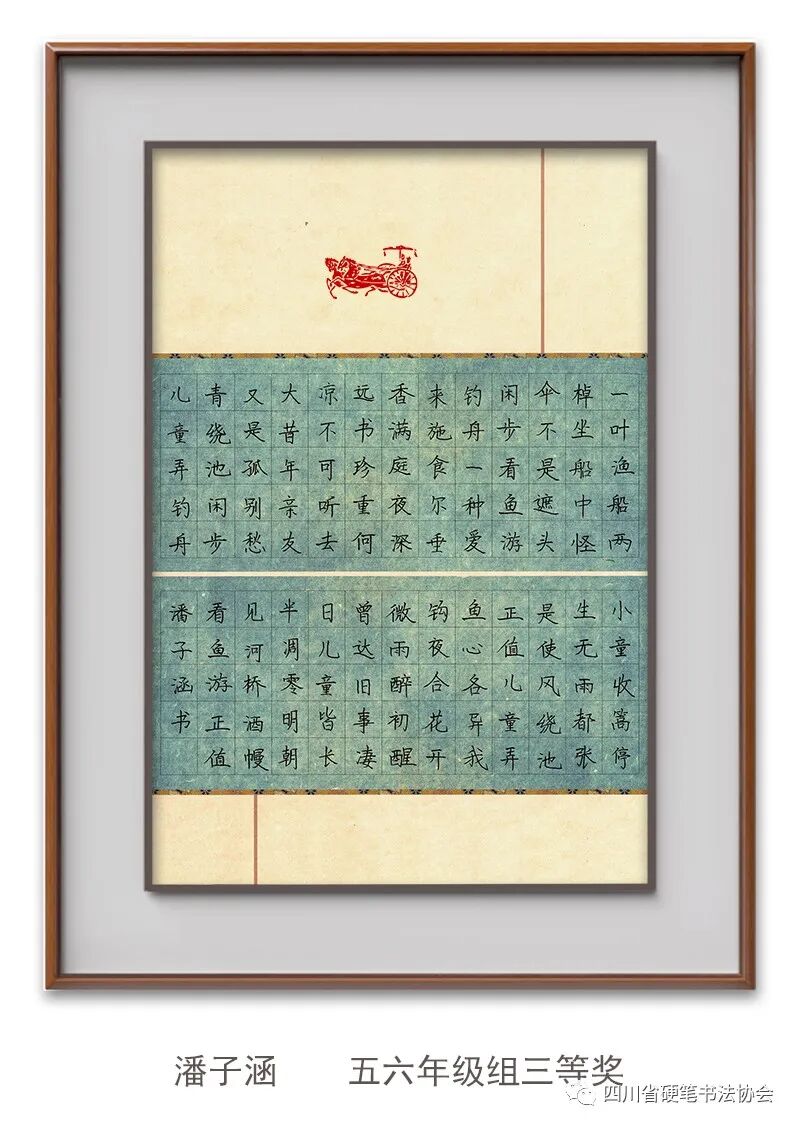 一叶渔船两小童收篙停
棹坐船中怪生无雨都张
伞不是遮头是使风绕池
闲步看鱼游正值儿童弄
钓舟一种爱鱼心各异我
来施食尔垂钩夜合花开
香满庭夜深微雨醉初醒
远书珍重何曾达旧事凄
凉不可听去日儿童皆长
大昔年亲友半凋零明朝
又是孤别愁见河桥酒幔
青绕池闲步看鱼游正值
儿童弄钓舟潘子涵书
潘子涵 五六年级组三等奖
四川省硬笔书法协会